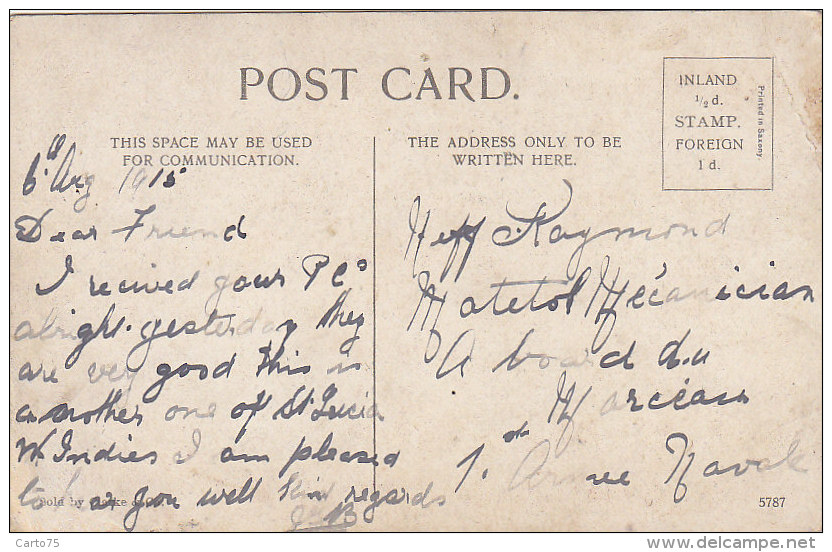 POST CARD.
INLAND
½ d.
STAMP.
FOREIGN
1 d.
Printed in Saxony
THIS SPACE MAY BE USED
FOR COMMUNICATION.
THE ADDRESS ONLY TO BE
WRITTEN HERE.
6th Aug 1915
Dear Friend
I recived your PCs
alright. yesterday they
are very good this is
another one of St. Lucia
W Indies I am pleased
to hear you well kind regards
Neff Raymond
Matelot Mécanicien
A board du
Marceau
1. st Armee Navale
Sold by
5787
Carto75
http://www.delcampe.net